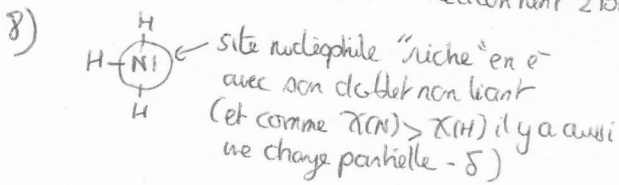 8)
H
H-N|
H
site nucléophile "riche" en e-
avec son doublet non liant
(et comme χ(N) > χ(H) il y a aussi
une charge partielle -δ)